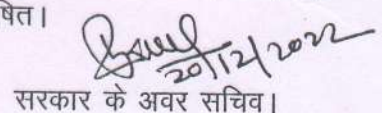 षित।
20/12/2022
सरकार के अवर सचिव।